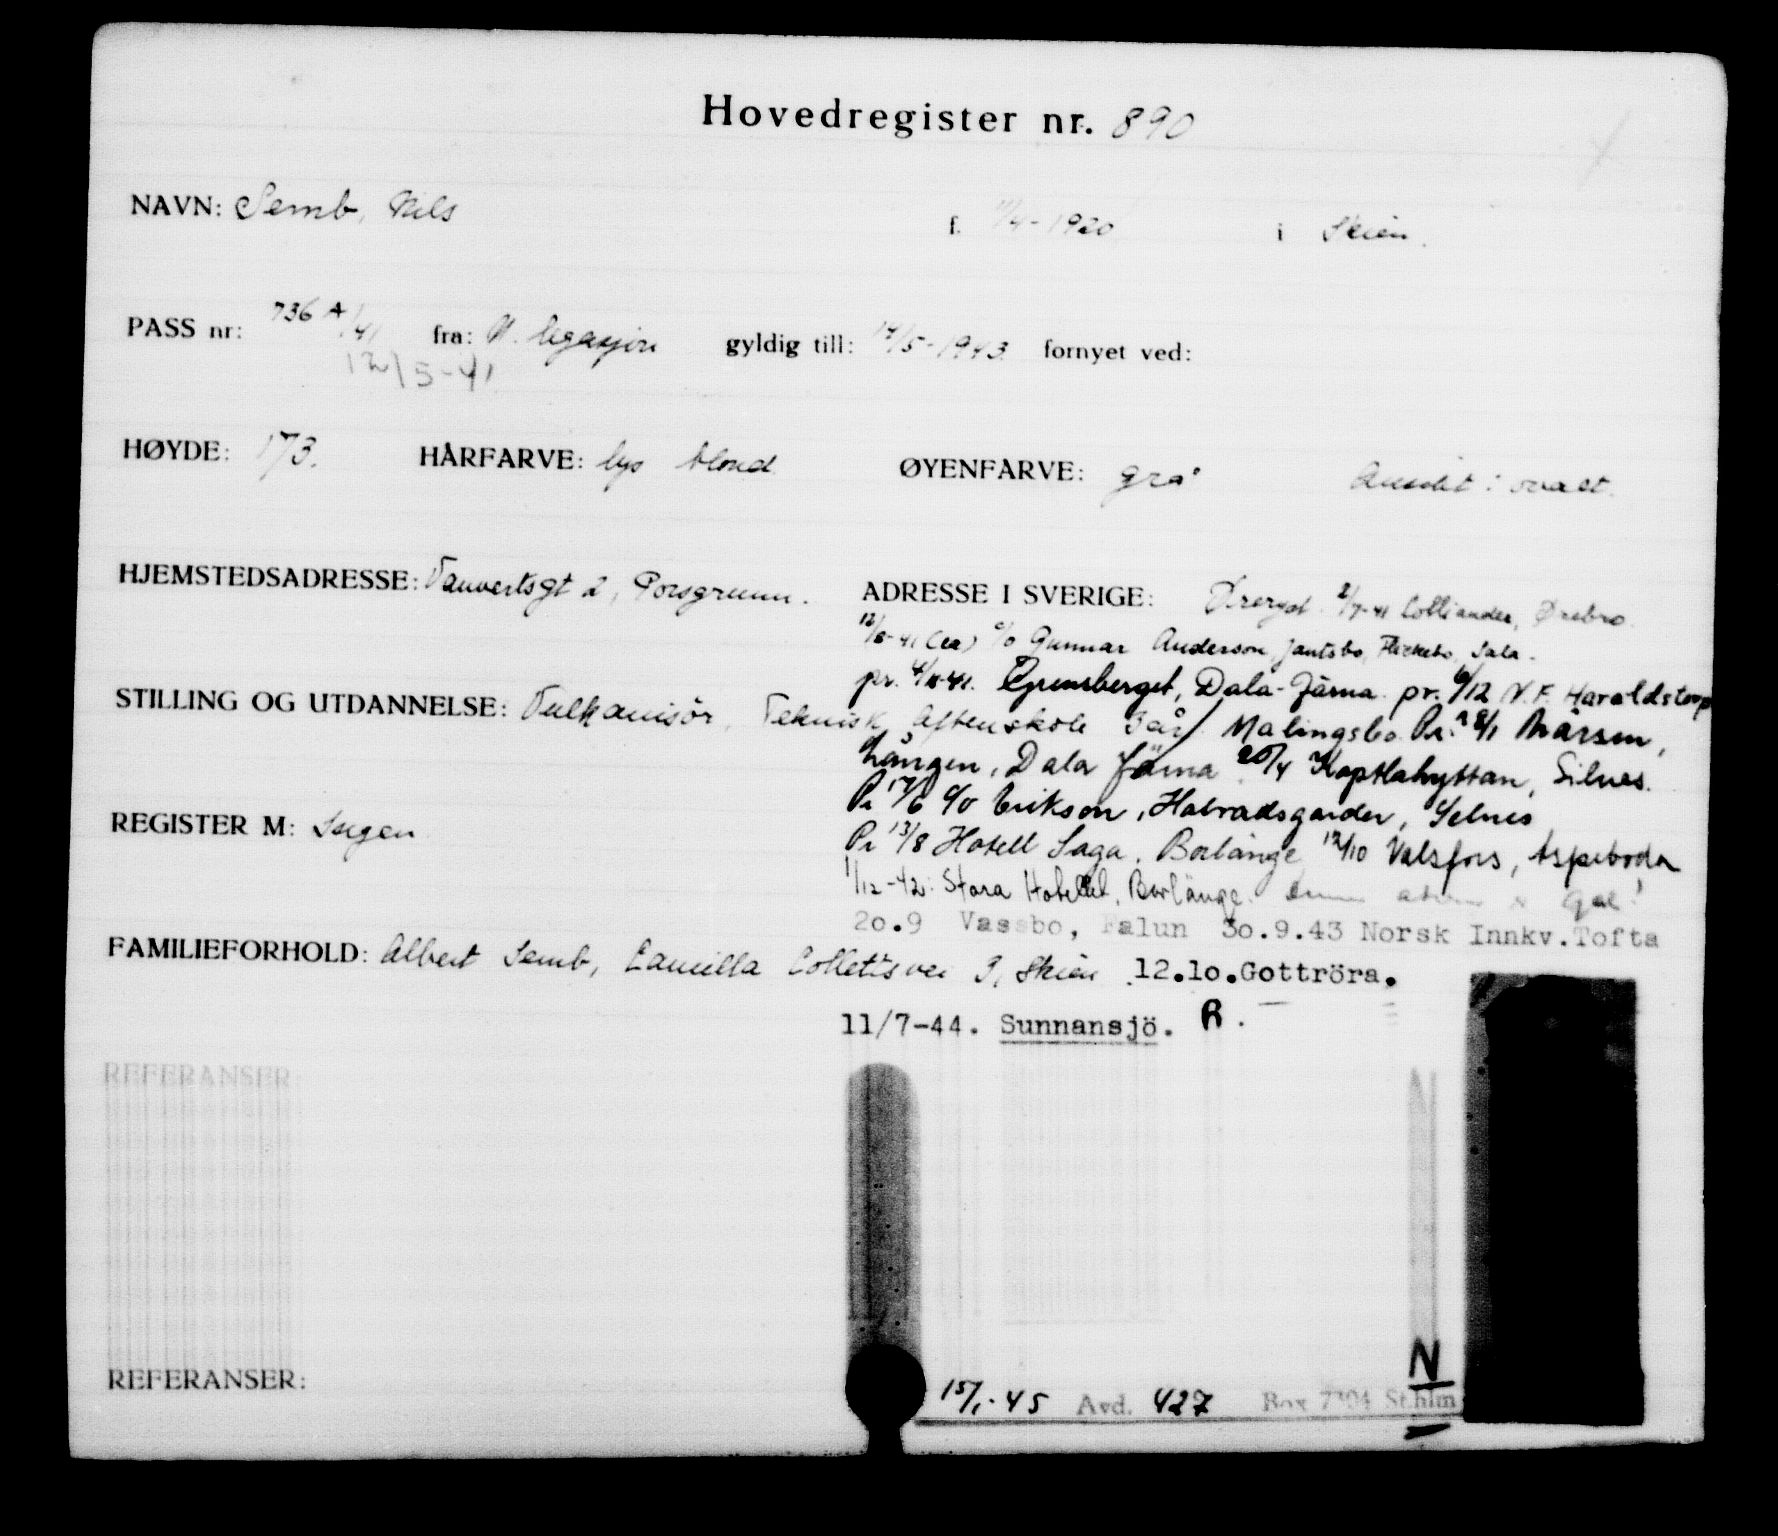 Hovedregister nr. 890
NAVN: Semb, Nils f. 11/4-1920 i Skien.
PASS nr: 736 A/41 fra: N. legasjon gyldig till: 12/5-1943 fornyet ved:
12/5-41
HØYDE: 173. HÅRFARVE: lys blond ØYENFARVE: grå Ansikt: ovalt.
HJEMSTEDSADRESSE: gt 2, Porsgrunn. ADRESSE I SVERIGE: Öreryd 2/7-41 Colliander, Örebro
12/8-41 (ca) c/o Gunnar Anderson, Jantsbo, Fläckebo, Sala.
pr. 4/11-41. Grunsberget, Dala-Järna. pr. 6/12 N.F. Haraldstorp
STILLING OG UTDANNELSE: Vulkanisör, Teknisk Aftenskole 3 år/ Malingsbo. Pr. 28/1 Närsen,
Lången, Dala Järna 20/4 Kopslahyttan, Silnes.
Pr 17/6 c/o Erikson, Halvradsgarden, Selnes
REGISTER M: Ingen Pr 13/8 Hotell Saga, Borlänge 12/10 Valsfors, Aspeboda
1/12-42: Stora Hotellet, Borlänge.
20.9 Vassbo, Falun 30.9.43 Norsk Innkv. Tofta
FAMILIEFORHOLD: Albert Semb, Camilla Colletts vei 3, Skien 12.10. Gottröra.
11/7-44. Sunnansjö. R.
REFERANSER
REFERANSER:
N
15/1-45 Avd. 427 Box 7304 St.hlm